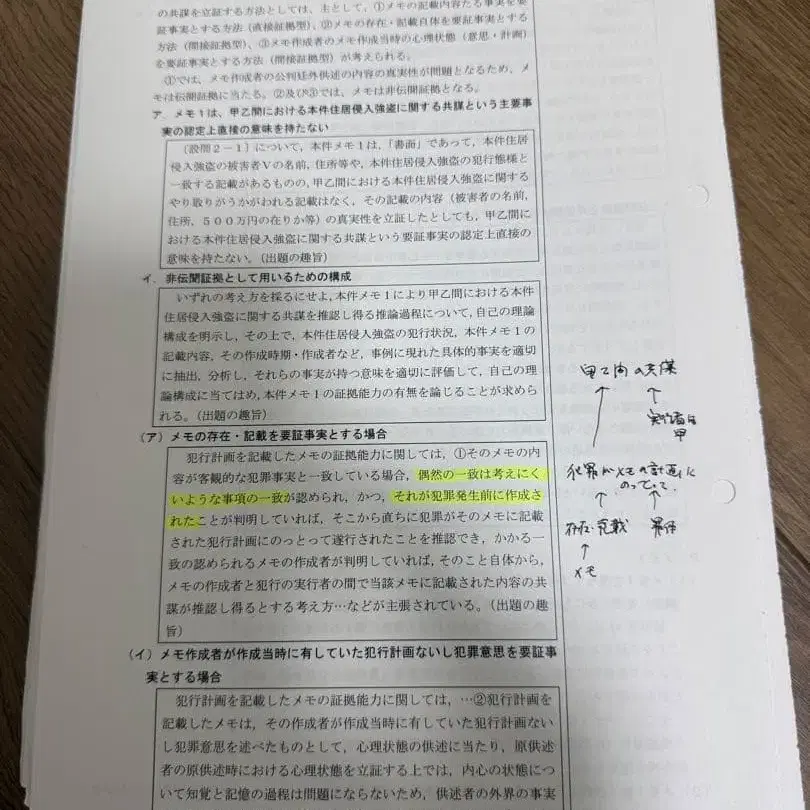 の共謀を立証する方法としては、主として、①メモの記載内容たる事実を要
証事実とする方法（直接証拠型）、②メモの存在・記載自体を要証事実とする
方法（間接証拠型）、③メモ作成者のメモ作成当時の心理状態（意思・計画）
を要証事実とする方法（間接証拠型）が考えられる。
①では、メモ作成者の公判廷外供述の内容の真実性が問題となるため、メ
モは伝聞証拠に当たる。②及び③では、メモは非伝聞証拠となる。
ア．メモ１は、甲乙間における本件住居侵入強盗に関する共謀という主要事
実の認定上直接の意味を持たない
〔設問２－１〕について，本件メモ１は，「書面」であって，本件住居
侵入強盗の被害者Ｖの名前，住所等や，本件住居侵入強盗の犯行態様と
一致する記載があるものの，甲乙間における本件住居侵入強盗に関する
やり取りがうかがわれる記載はなく，その記載の内容（被害者の名前，
住所，５００万円の在りか等）の真実性を立証したとしても，甲乙間に
おける本件住居侵入強盗に関する共謀という要証事実の認定上直接の
意味を持たない。（出題の趣旨）
イ．非伝聞証拠として用いるための構成
いずれの考え方を採るにせよ，本件メモ１により甲乙間における本件
住居侵入強盗に関する共謀を推認し得る推論過程について，自己の理論
構成を明示し，その上で，本件住居侵入強盗の犯行状況，本件メモ１の
記載内容，その作成時期・作成者など，事例に現れた具体的事実を適切
に抽出，分析し，それらの事実が持つ意味を適切に評価して，自己の理
論構成に当てはめ，本件メモ１の証拠能力の有無を論じることが求めら
れる。（出題の趣旨）
（ア）メモの存在・記載を要証事実とする場合
犯行計画を記載したメモの証拠能力に関しては，①そのメモの内
容が客観的な犯罪事実と一致している場合，偶然の一致は考えにく
いような事項の一致が認められ，かつ，それが犯罪発生前に作成さ
れたことが判明していれば，そこから直ちに犯罪がそのメモに記載
された犯行計画にのっとって遂行されたことを推認でき，かかる一
致の認められるメモの作成者が判明していれば，そのこと自体から，
メモの作成者と犯行の実行者の間で当該メモに記載された内容の共
謀が推認し得るとする考え方…などが主張されている。（出題の趣
旨）
（イ）メモ作成者が作成当時に有していた犯行計画ないし犯罪意思を要証事
実とする場合
犯行計画を記載したメモの証拠能力に関しては，…②犯行計画を
記載したメモは，その作成者が作成当時に有していた犯行計画ない
し犯罪意思を述べたものとして，心理状態の供述に当たり，原供述
者の原供述時における心理状態を立証する上では，内心の状態につ
いて知覚と記憶の過程は問題にならないため，供述者の外界の事実
甲乙間の共謀
実行者は
甲
犯罪がメモの計画に
のっとって．
存在・記載
メモ